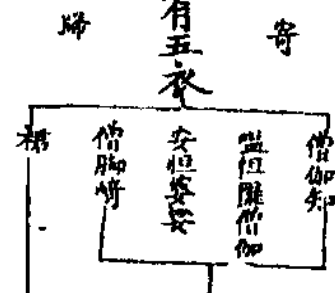 寄歸
有五衣
僧伽知
嗢怛羅僧伽
安怛婆娑
僧脚崎
裙